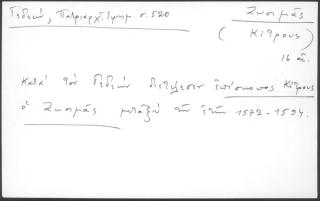 Γεδεών, Πατριαρχ. Εφημ σ. 520
Ζωσιμάς
(Κίτρους)
16 αι.
Κατά τον Γεδεών διετέλεσεν επίσκοπος Κίτρους
ο Ζωσιμάς μεταξύ των ετών 1572-1594.